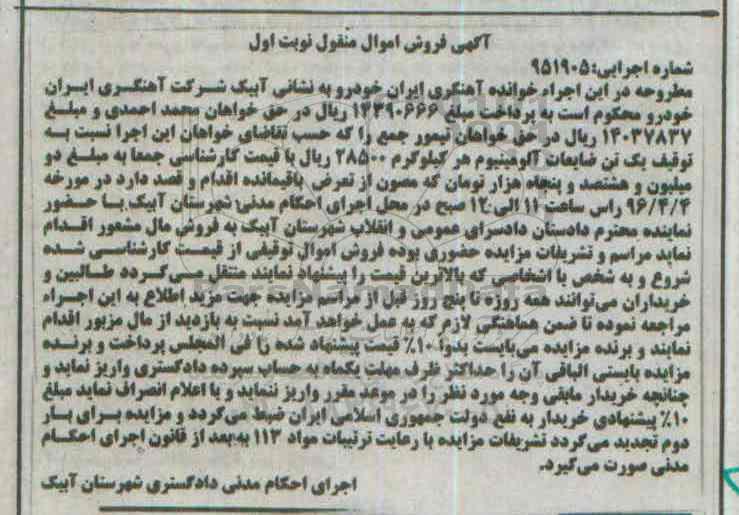 آگهی فروش اموال منقول نوبت اول
شماره اجرایی: ۹۵۱۹۰۵
مطروحه در این اجراء خوانده آهنگری ایران خودرو به نشانی آبیک شرکت آهنگری ایران
خودرو محکوم است به پرداخت مبلغ ۱۳۳۹۰۶۶۶ ریال در حق خواهان محمد احمدی و مبلغ
۱۴۰۳۷۸۳۷ ریال در حق خواهان تیمور جمع را که حسب تقاضای خواهان این اجرا نسبت به
توقیف یک تن ضایعات آلومینیوم هر کیلوگرم ۲۸۵۰۰ ریال با قیمت کارشناسی جمعا به مبلغ دو
میلیون و هشتصد و پنجاه هزار تومان که مصون از تعرض باقیمانده اقدام و قصد دارد در مورخه
۹۶/۴/۴ راس ساعت ۱۱ الی ۱۲ صبح در محل اجرای احکام مدنی شهرستان آبیک با حضور
نماینده محترم دادستان دادسرای عمومی و انقلاب شهرستان آبیک به فروش مال مشعور اقدام
نماید مراسم و تشریفات مزایده حضوری بوده فروش اموال توقیفی از قیمت کارشناسی شده
شروع و به شخص یا اشخاصی که بالاترین قیمت را پیشنهاد نمایند منتقل می‌گردد طالبین و
خریداران می‌توانند همه روزه تا پنج روز قبل از مراسم مزایده جهت مزید اطلاع به این اجراء
مراجعه نموده تا ضمن هماهنگی لازم که به عمل خواهد آمد نسبت به بازدید از مال مزبور اقدام
نمایند و برنده مزایده می‌بایست بدوا ۱۰٪ قیمت پیشنهاد شده را فی المجلس پرداخت و برنده
مزایده بایستی الباقی آن را حداکثر ظرف مهلت یکماه به حساب سپرده دادگستری واریز نماید و
چنانچه خریدار مابقی وجه مورد نظر را در موعد مقرر واریز ننماید و یا اعلام انصراف نماید مبلغ
۱۰٪ پیشنهادی خریدار به نفع دولت جمهوری اسلامی ایران ضبط می‌گردد و مزایده برای بار
دوم تجدید می‌گردد تشریفات مزایده با رعایت ترتیبات مواد ۱۱۳ به بعد از قانون اجرای احکام
مدنی صورت می‌گیرد.
اجرای احکام مدنی دادگستری شهرستان آبیک